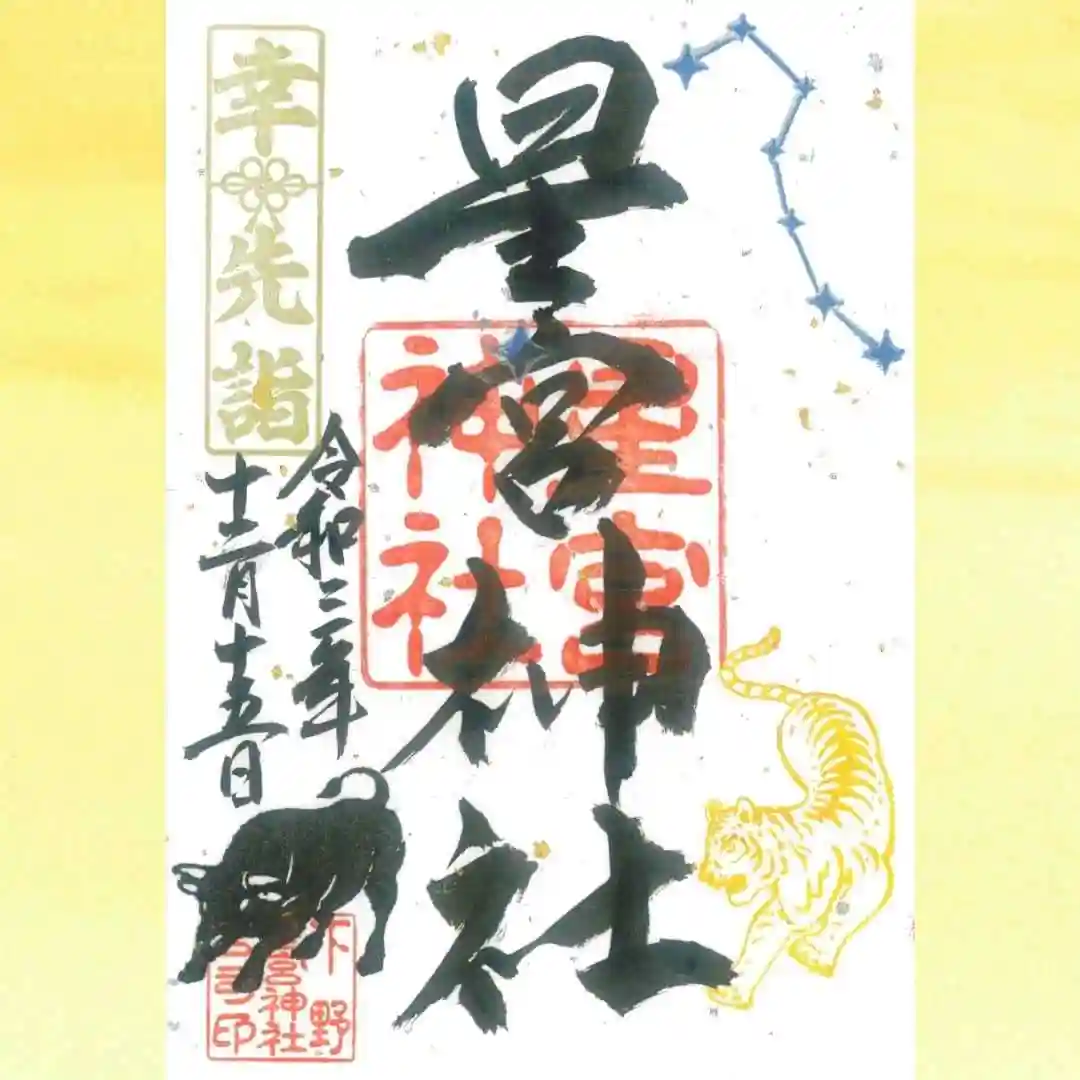 星宮神社
星宮
神社
幸先詣
令和三年
十二月十五日
下野
星宮神社
宮司印